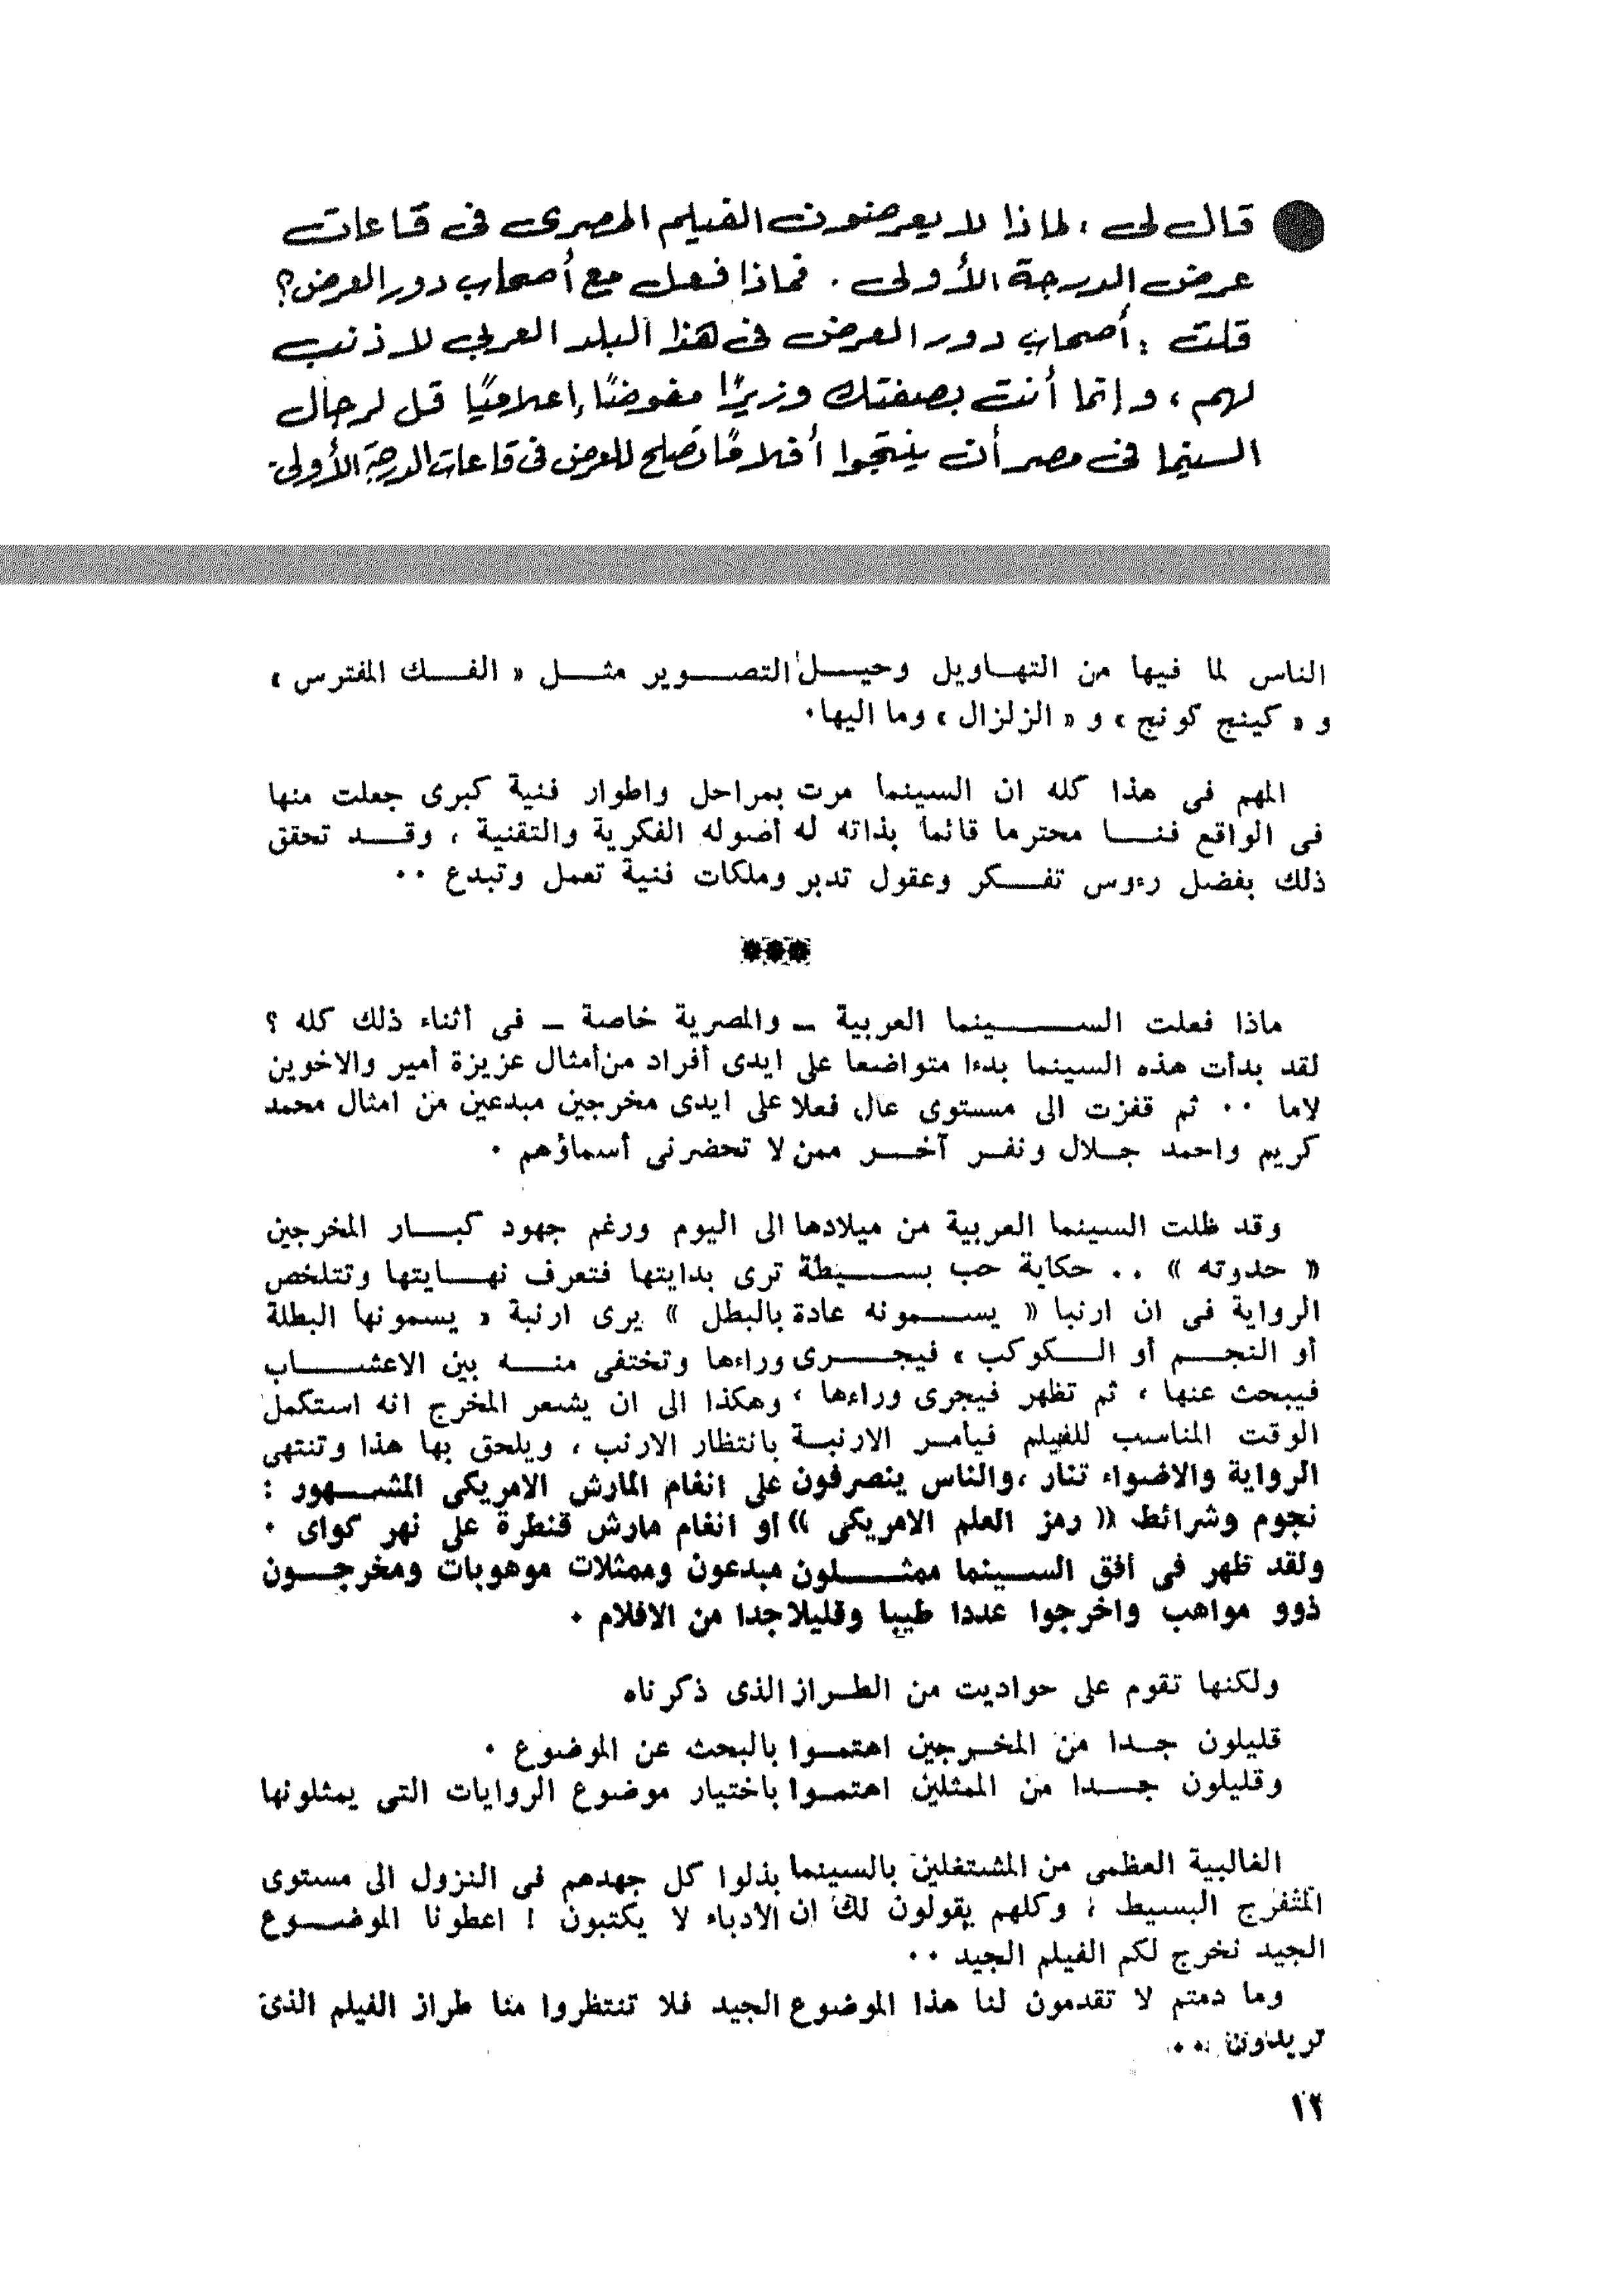 ● قال لى : لماذا لا يعرضون الفيلم المصرى فى قاعات
عرض الدرجة الأولى . فماذا فعل مع أصحاب دور العرض ؟
قلت : أصحاب دور العرض فى هذا البلد العربى لا ذنب
لهم ، وإنما أنت بصفتك وزيرًا مفوضًا إعلاميًا قل لرجال
السينما فى مصر أن ينتجوا أفلامًا تصلح للعرض فى قاعات الدرجة الأولى .
الناس لما فيها من التهاويل وحيل التصوير مثل « الفك المفترس »
و « كينج كونج » و « الزلزال » وما اليها .
المهم فى هذا كله ان السينما مرت بمراحل واطوار فنية كبرى جعلت منها
فى الواقع فنا محترما قائما بذاته له أصوله الفكرية والتقنية ، وقد تحقق
ذلك بفضل رءوس تفكر وعقول تدبر وملكات فنية تعمل وتبدع ..
***
ماذا فعلت السينما العربية – والمصرية خاصة – فى أثناء ذلك كله ؟
لقد بدأت هذه السينما بدءا متواضعا على ايدى أفراد من أمثال عزيزة أمير والاخوين
لاما .. ثم قفزت الى مستوى عال فعلا على ايدى مخرجين مبدعين من امثال محمد
كريم واحمد جلال ونفر آخر ممن لا تحضرنى أسماؤهم .
وقد ظلت السينما العربية من ميلادها الى اليوم ورغم جهود كبار المخرجين
« حدوته » .. حكاية حب بسيطة ترى بدايتها فتعرف نهايتها وتتلخص
الرواية فى ان ارنبا « يسمونه عادة بالبطل » يرى ارنبة « يسمونها البطلة
أو النجم أو الكوكب » فيجرى وراءها وتختفى منه بين الاعشاب
فيبحث عنها ، ثم تظهر فيجرى وراءها ، وهكذا الى ان يشعر المخرج انه استكمل
الوقت المناسب للفيلم فيأمر الارنبة بانتظار الارنب ، ويلحق بها هذا وتنتهى
الرواية والاضواء تنار ، والناس ينصرفون على انغام المارش الامريكى المشهور :
نجوم وشرائط « رمز العلم الامريكى » أو انغام مارش قنطرة على نهر كواى .
ولقد ظهر فى افق السينما ممثلون مبدعون وممثلات موهوبات ومخرجون
ذوو مواهب واخرجوا عددا طيبا وقليلا جدا من الافلام .
ولكنها تقوم على حواديت من الطراز الذى ذكرناه
قليلون جدا من المخرجين اهتموا بالبحث عن الموضوع .
وقليلون جدا من الممثلين اهتموا باختيار موضوع الروايات التى يمثلونها
الغالبية العظمى من المشتغلين بالسينما بذلوا كل جهدهم فى النزول الى مستوى
المتفرج البسيط ؛ وكلهم يقولون لك ان الأدباء لا يكتبون ! اعطونا الموضوع
الجيد نخرج لكم الفيلم الجيد ..
وما دمتم لا تقدمون لنا هذا الموضوع الجيد فلا تنتظروا منا طراز الفيلم الذى
تريدون ..
١٢